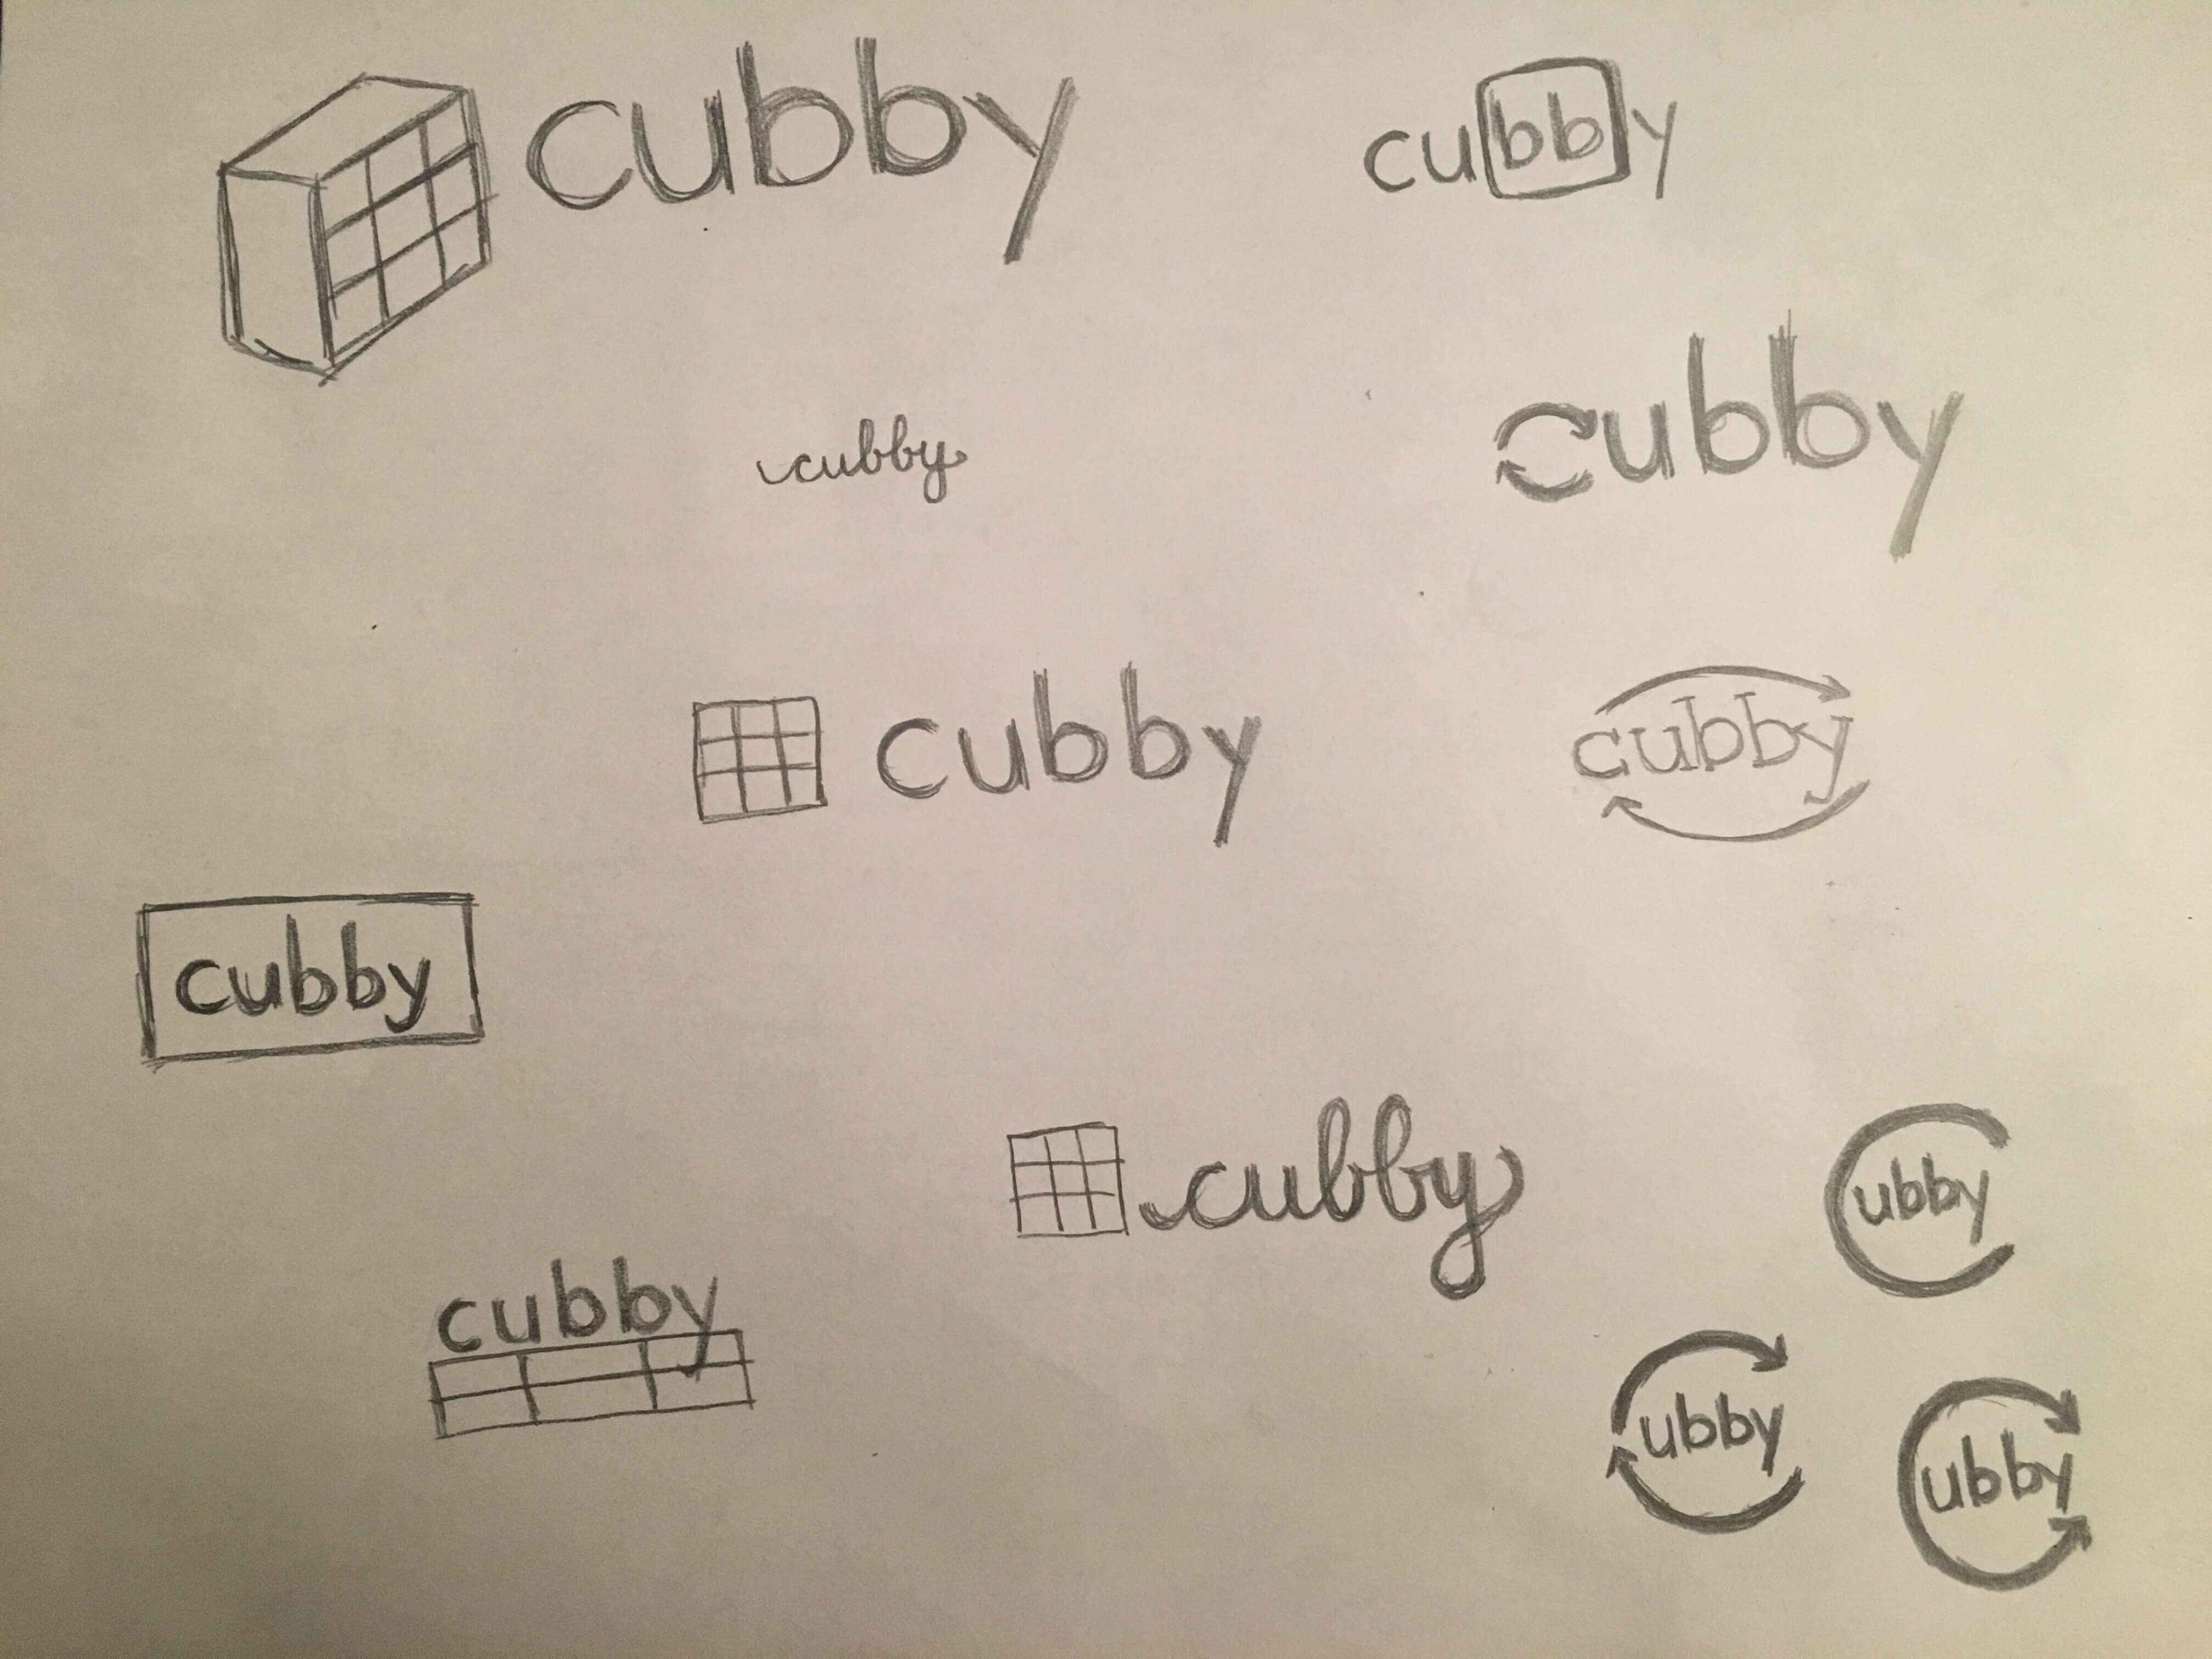 cubby
cubby
cubby
cubby
cubby
cubby
cubby
cubby
ubby
cubby
ubby
ubby